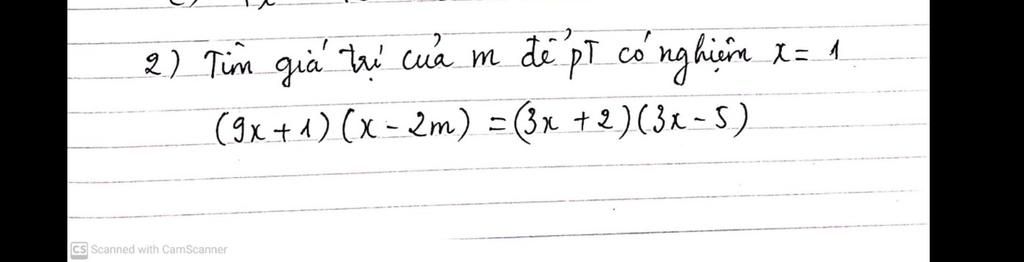 2) Tìm giá trị của m để pT có nghiệm x = 1
(9x + 1) (x - 2m) = (3x + 2)(3x - 5)
CS Scanned with CamScanner